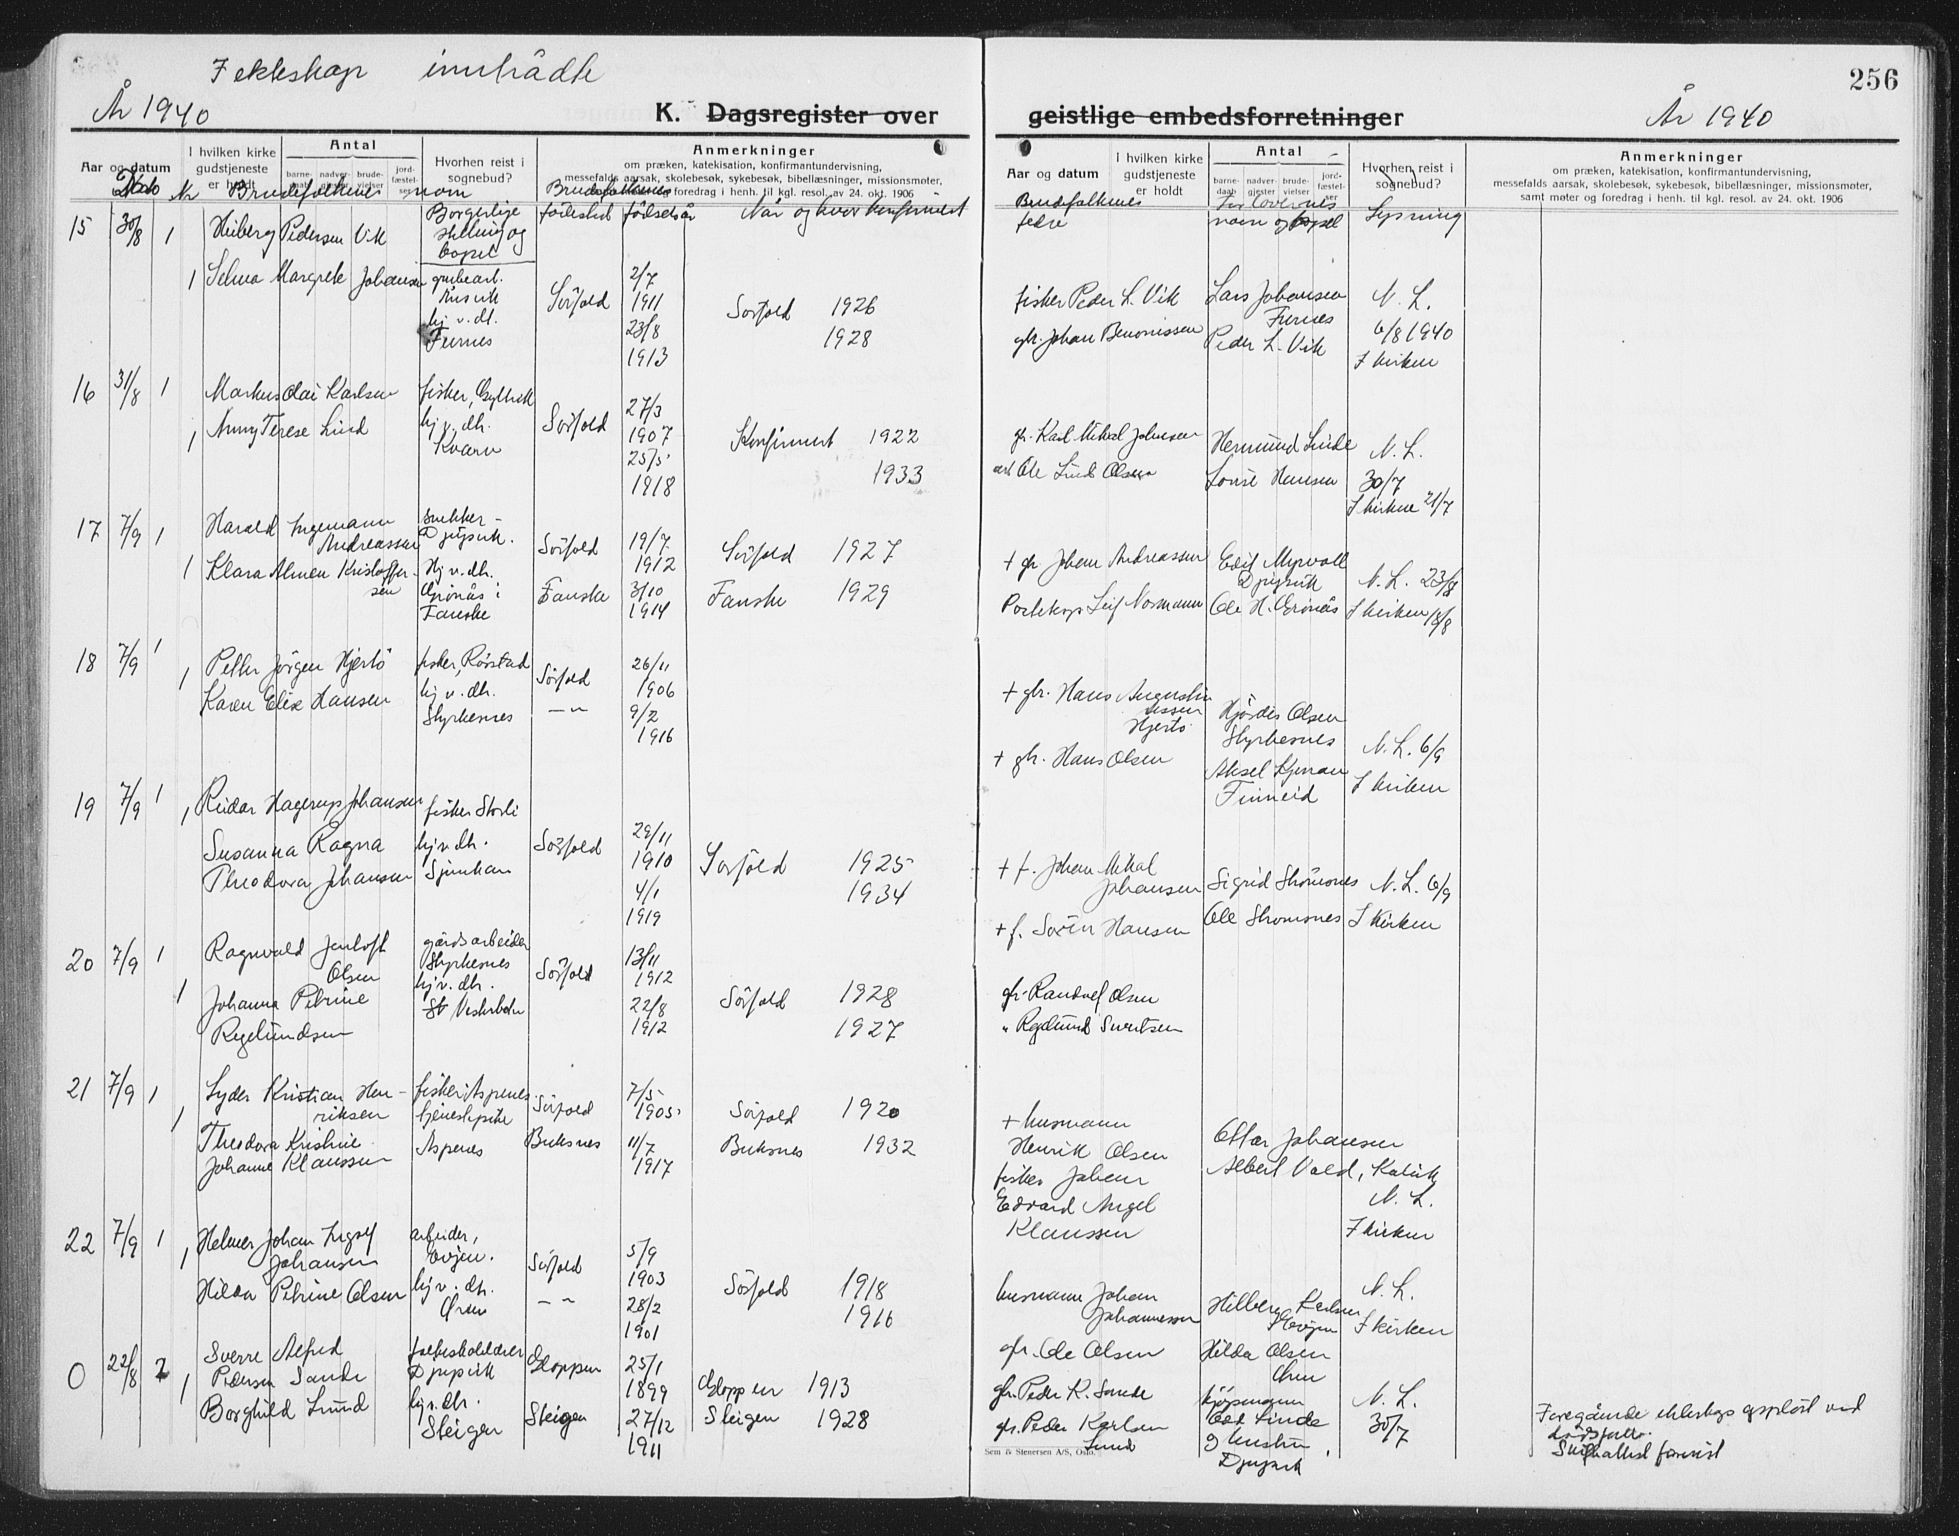 I ekteskap inntrådte
År 1940
K. Dagsregister over
geistlige embedsforretninger
År 1940
256
Aar og datum
I hvilken kirke gudstjeneste er holdt
Antal
barne-daab
nadver-gjester
brude-vielser
jord-fæstel-ser
Hvorhen reist i sognebud?
Anmerkninger
om præken, katekisation, konfirmantundervisning,
messefalds aarsak, skolebesøk, sykebesøk, bibellæsninger, missionsmøter,
samt møter og foredrag i henh. til kgl. resol. av 24. okt. 1906
Aar og datum
I hvilken kirke gudstjeneste er holdt
Antal
barne-daab
nadver-gjester
brude-vielser
jord-fæstel-ser
Hvorhen reist i sognebud?
Anmerkninger
om præken, katekisation, konfirmantundervisning,
messefalds aarsak, skolebesøk, sykebesøk, bibellæsninger, missionsmøter,
samt møter og foredrag i henh. til kgl. resol. av 24. okt. 1906
Dato Nr Brudefolkenes navn
Borgerlige stilling og bopel
Brudefolkenes
fødested fødselsår
Når og hvor konfirmert
Brudefolkenes fedre
Forlovernes navn og bopel
Lysning
15 30/8 1 Heiberg Pedersen Vik
1 Selma Margrete Johansen
hj. v. dh.
Furnes
Sørfold
2/7 1911
23/8 1913
Sørfold 1926
1928
fisker Peder L. Vik
gbr. Johan Benonissen
Lars Johansen
Furnes
Peder L. Vik
N. L.
6/8 1940
I kirken
16 31/8 1 Markus Olai Karlsen
1 Anny Terese Lind
fisker,
hj v. dh.
Kvarv
Sørfold
27/3 1907
25/5 1918
Konfirmert 1922
1933
gbr. Karl Mikal Johansen
arb Ole Lind Olsen
Hermund Linde
Louise Hansen
N. L.
30/7
I kirken 21/7
17 7/9 1 Harald Ingemann
Andreassen
1 Klara Almen Kristoffer-
sen
snekker -
Djupvik.
Hj v. dh.
Grønås i
Fauske
Sørfold
Fauske
19/7 1912
3/10 1914
Sørfold 1927
Fauske 1929
+ gbr Johan Andreassen
Leif Normann
Edit Myrvoll
Djupvik
Ole H. Grönås
N. L. 23/8
I kirken 18/8
18 7/9 1
1 Petter Jørgen Hjertö
Karen Elise Hansen
fisker, Rørstad
hj v. dh.
Styrkesnes
Sørfold
— " —
26/11 1906
9/2 1916
+ gbr. Hans Augustin
ussen
Hjertö
+ gbr. Hans Olsen
Hjørdis Olsen
Styrkesnes
Aksel
Finneid
N. L. 6/9
I kirken
19 7/9 1
1 Reidar Hagerup Johansen
Susanna Ragna
Theodora Johansen
fisker Storli
hj v. dh.
Sjunhan
Sørfold
29/11 1910
4/1 1919
Sørfold 1925
1934
+ f. Johan Mikal
Johansen
+ f. Sørin Hansen
Sigrid Strømsnes
Ole Strømsnes
N. L. 6/9
I Kirken
20 7/9 1 Ragnvald Jentoft
Olsen
1 Johanna Petrine
Regelundsen
gårdsarbeider
Styrkesnes
hj v. dh.
Sørfold
13/11 1912
22/8 1912
Sørfold 1928
1927
gbr. Randulf Olsen
" Regelund Sivertsen
21 7/9 1 Lyder Kristian Hen-
riksen
1 Theodora Kristine
Johanne Klaussen
fisker Aspenes
tjenestepike
Aspenes
Sørfold
Buksnes
7/5 1905
11/7 1917
Sørfold 1920
Buksnes 1932
+ husmann
Henrik Olsen
fisker Johan
Edvard Angel
Klaussen
Ottar Johansen
Albert Vold, Kalvik
N. L.
I kirken
22 7/9 1
1 Helmer Johan Ingolf
Johansen
Hilda Petrine Olsen
arbeider,
Evjen.
hj v. dh.
Øren
Sørfold
— " —
5/9 1903
28/2 1901
Sørfold 1918
1916
husmann Johan
Johannessen
gbr. Ole Olsen
Hilberg Karlsen
Evjen
Hilda Olsen
Øren
N. L.
I kirken
0 22/8 1 Sverre Alfred
Pedersen Sande
1 Borghild Lund
Djupvik
hj v. dh.
Steigen
Gloppen
Steigen
25/1 1899
27/12 1911
Gloppen 1913
Steigen 1928
gbr. Peder K. Sande
gbr. Peder Karlsen
Lund
kjøpmann
Linde
og hustru
Djupvik
N. L.
30/7
Foregående ekteskap oppløst ved
dødsfall.
Skifteattest forevist
Sem & Stenersen A/S, Oslo.